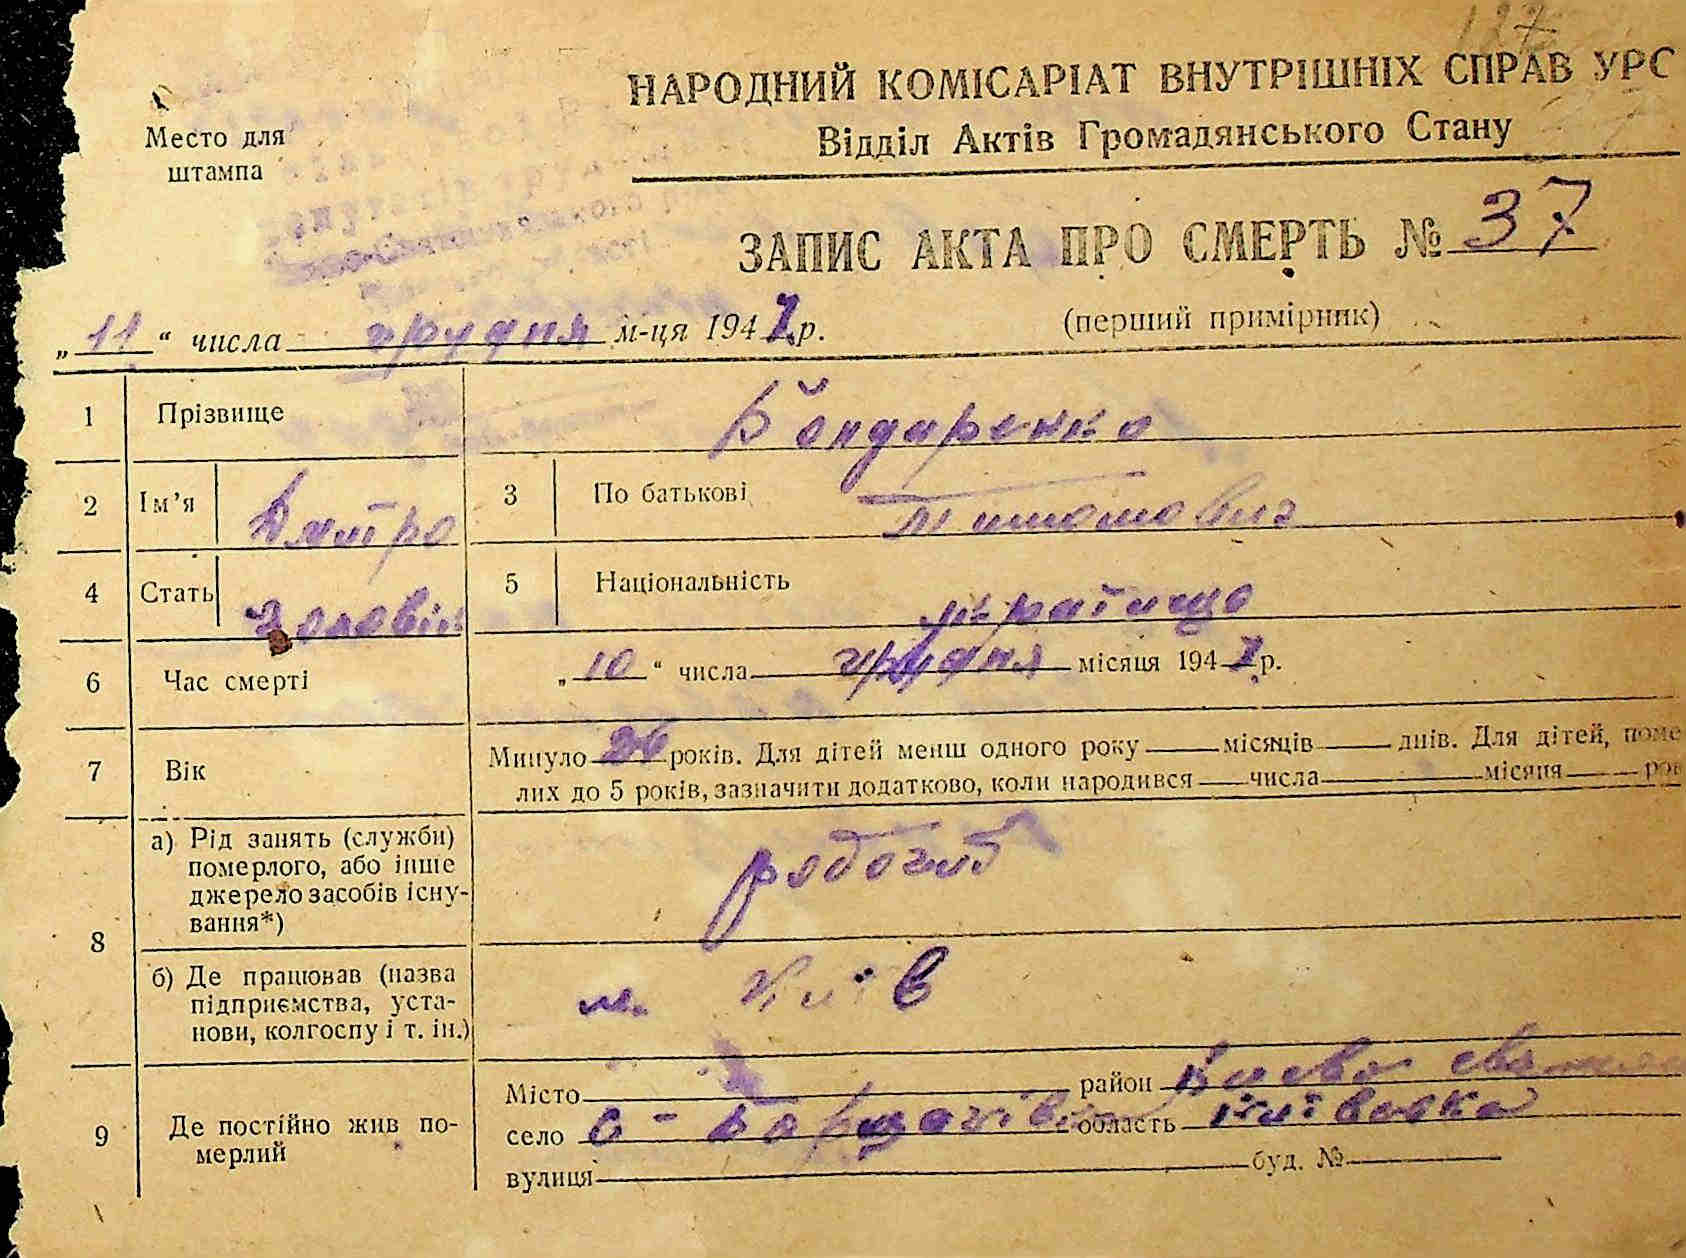 127
НАРОДНИЙ КОМІСАРІАТ ВНУТРІШНІХ СПРАВ УРС
Відділ Актів Громадянського Стану
Место для
штампа
ЗАПИС АКТА ПРО СМЕРТЬ № 37
(перший примірник)
„11“ числа грудня м-ця 194 р.
1 Прізвище Бондаренко
2 Ім’я Дмитро 3 По батькові
4 Стать 5 Національність
6 Час смерті „10“ числа грудня місяця 194 р.
7 Вік Минуло років. Для дітей менш одного року місяців днів. Для дітей, поме
лих до 5 років, зазначити додатково, коли народився числа місяця рок
8 а) Рід занять (служби)
померлого, або інше
джерело засобів існу-
вання*)
б) Де працював (назва
підприємства, уста-
нови, колгоспу і т. ін.)
м. Київ
9 Де постійно жив по-
мерлий
Місто район Києво
село С-Борщагівка область Київська
вулиця буд. №